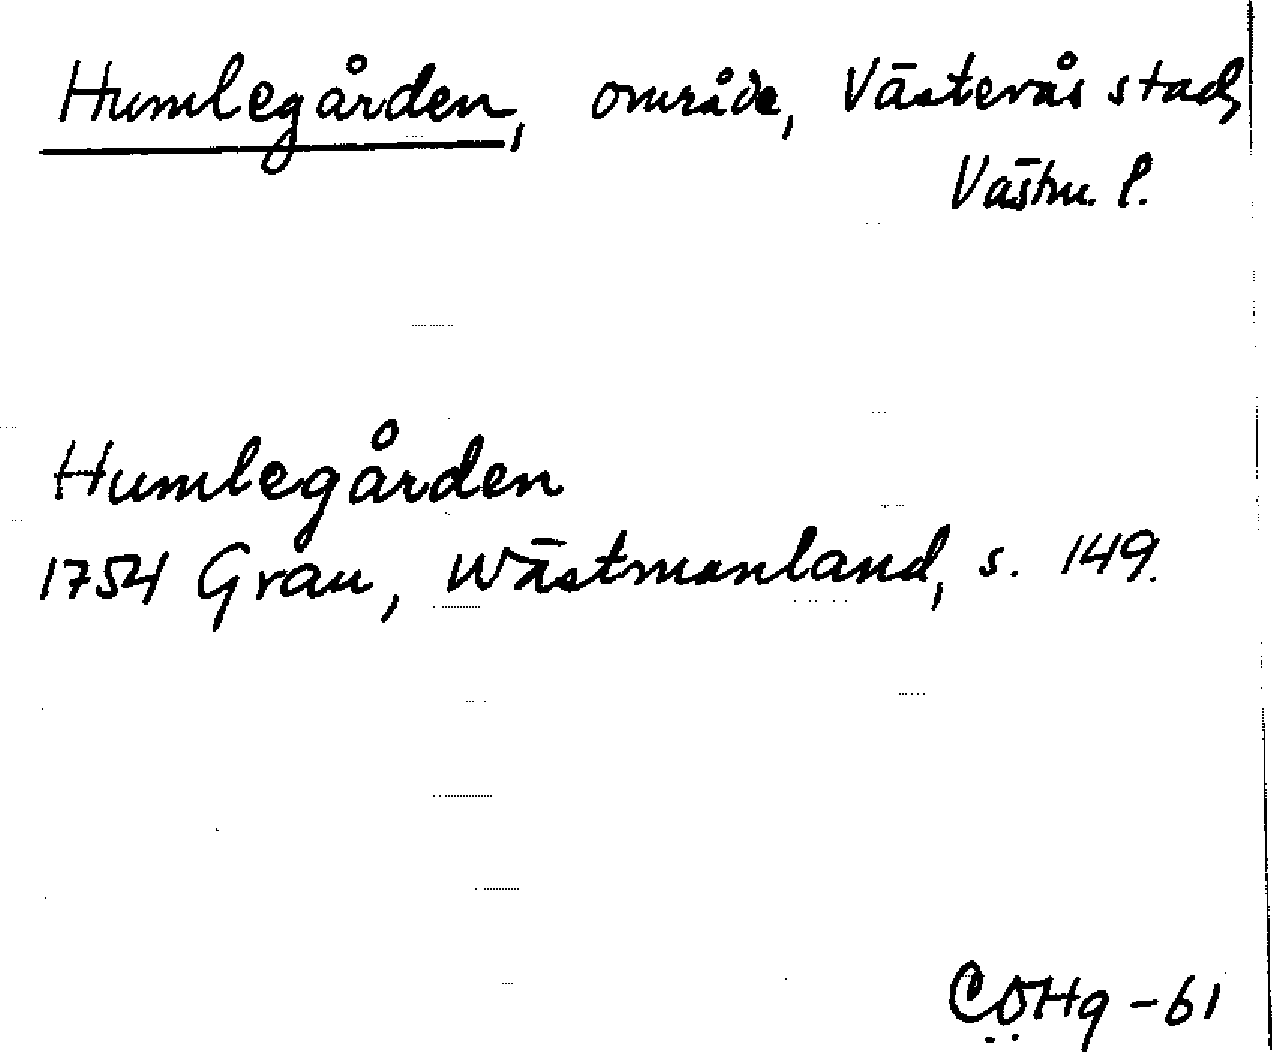 Humlegården, område, Västerås stad,
Västm. l.
Humlegården
1754 Grau, Wästmanland, s. 149.
CÖHg -61